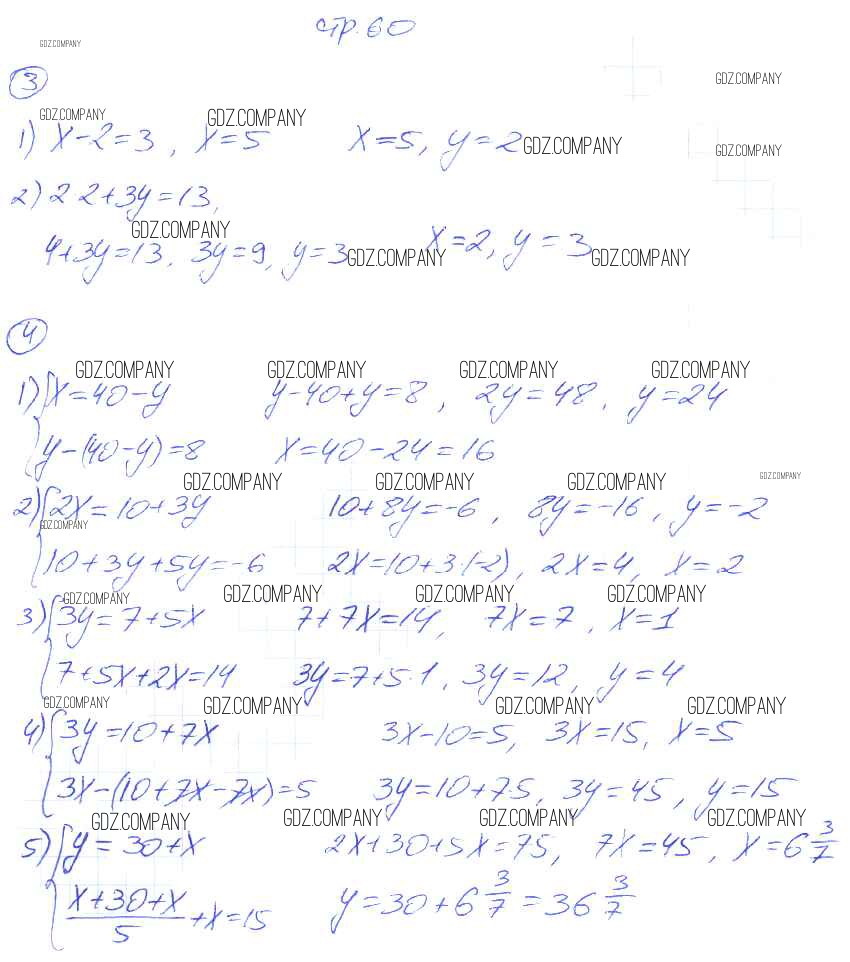 стр. 60
GDZ.COMPANY
3 GDZ.COMPANY
GDZ.COMPANY GDZ.COMPANY
1) x-2=3, x=5 x=5, y=2 GDZ.COMPANY GDZ.COMPANY
2) 2 2+3y=13,
GDZ.COMPANY
4+3y=13, 3y=9, y=3 GDZ.COMPANY x=2, y=3 GDZ.COMPANY
4
GDZ.COMPANY GDZ.COMPANY GDZ.COMPANY GDZ.COMPANY
1) { x=40-y y-40+y=8, 2y=48, y=24
y-(40-y)=8 x=40-24=16
GDZ.COMPANY GDZ.COMPANY GDZ.COMPANY GDZ.COMPANY
2) { 2x=10+3y 10+8y=-6, 8y=-16, y=-2
GDZ.COMPANY
10+3y+5y=-6 2x=10+3·(-2), 2x=4, x=2
GDZ.COMPANY GDZ.COMPANY GDZ.COMPANY GDZ.COMPANY
3) { 3y=7+5x 7+7x=14, 7x=7, x=1
7+5x+2x=14 3y=7+5·1, 3y=12, y=4
GDZ.COMPANY GDZ.COMPANY GDZ.COMPANY GDZ.COMPANY
4) { 3y=10+7x 3x-10=5, 3x=15, x=5
3x-(10+7x-7x)=5 3y=10+7·5, 3y=45, y=15
GDZ.COMPANY GDZ.COMPANY GDZ.COMPANY GDZ.COMPANY
5) { y=30+x 2x+30+5x=75, 7x=45, x=6 3/7
(x+30+x)/5 +x=15 y=30+6 3/7=36 3/7